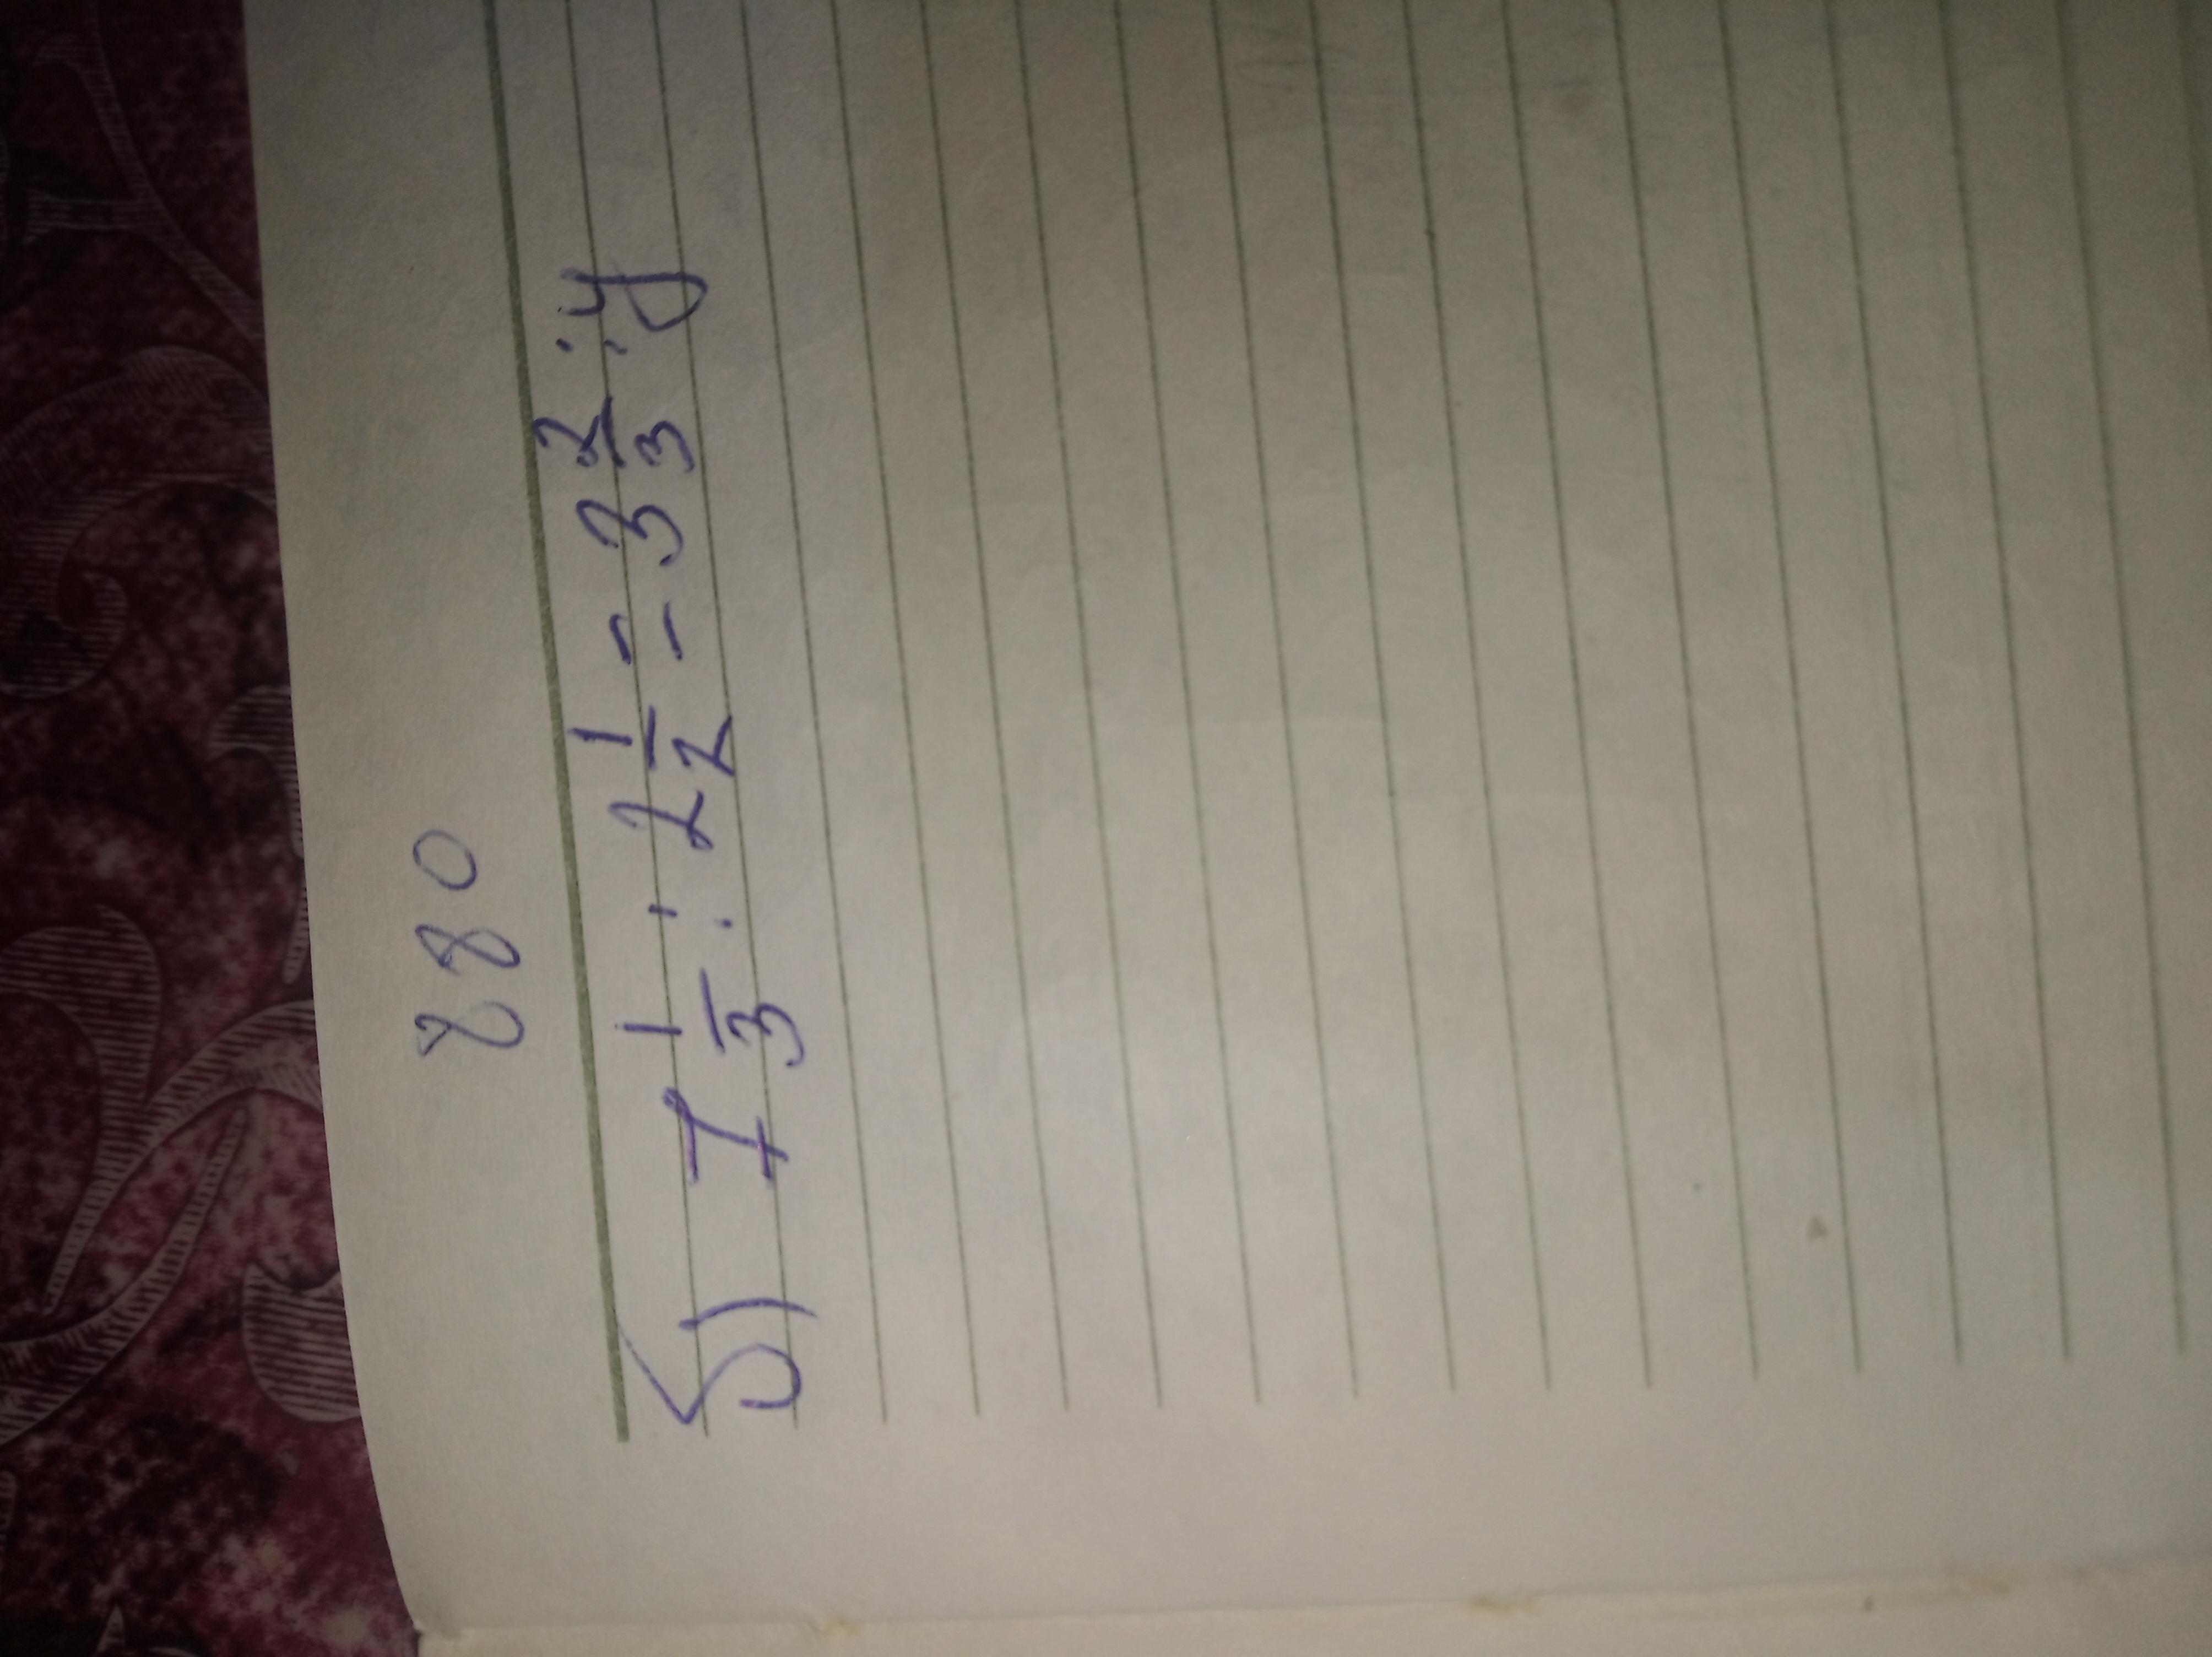 880
б) 7 1/3 : 2 1/2 = 3 2/3 : y